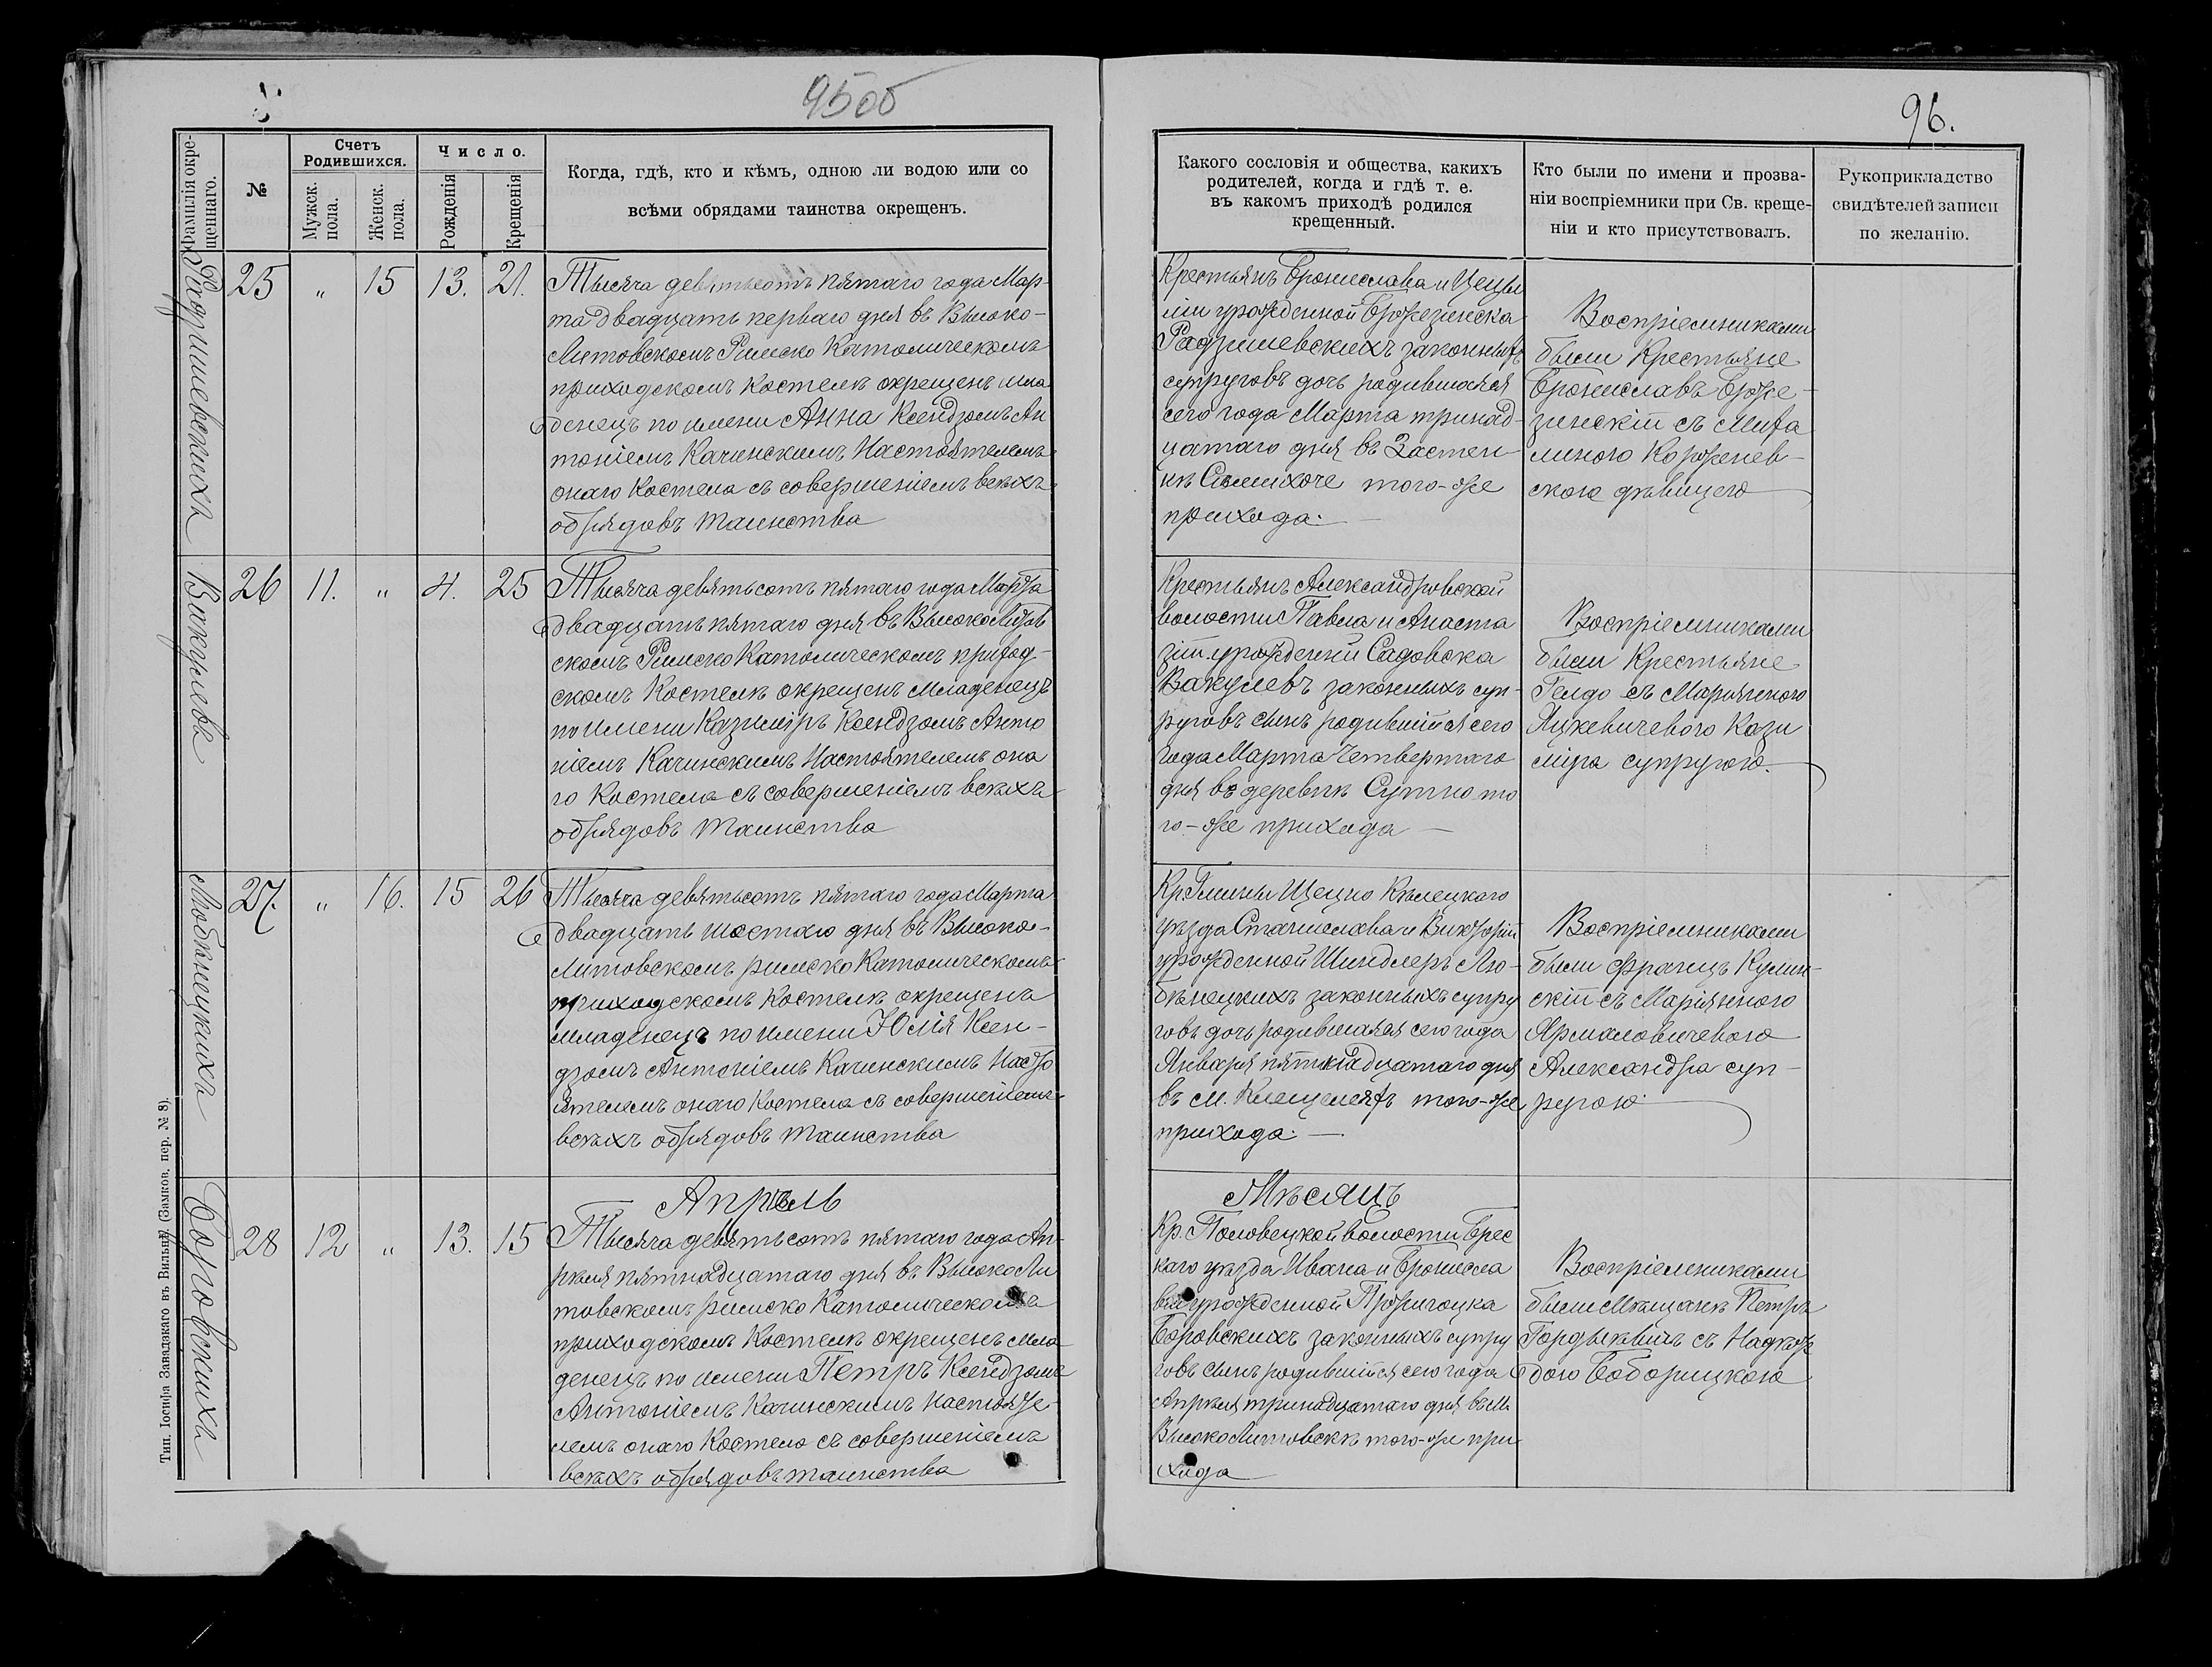 95об
96.
Фамилія окре-
щеннаго.
№
Счетъ
Родившихся.
Мужск.
пола.
Женск.
пола.
Число.
Рожденія
Крещенія
Когда, гдѣ, кто и кѣмъ, одною ли водою или со
всѣми обрядами таинства окрещенъ.
Какого сословія и общества, какихъ
родителей, когда и гдѣ т. е.
въ какомъ приходѣ родился
крещенный.
Кто были по имени и прозва-
ніи воспріемники при Св. креще-
ніи и кто присутствовалъ.
Рукоприкладство
свидѣтелей записи
по желанію.
Радзишевскихъ
25 " 15 13. 21.
Тысяча девятьсотъ пятаго года Мар-
та двадцать перваго дня въ Высоко-
Литовскомъ Римско Католическомъ
приходскомъ Костелѣ окрещенъ мла
денецъ по имени Анна Ксендзомъ Ан
тоніемъ Качинскимъ Настоятелемъ
онаго Костела съ совершеніемъ всѣхъ
обрядовъ таинства
Крестьянъ Бронислава и Цеци
ліи урожденной Бржезинска
Радзишевскихъ законныхъ
супруговъ дочь родившаяся
сего года Марта тринад-
цатаго дня въ Застен-
кѣ того-же
прихода.
Воспріемниками
были Крестьяне
Брониславъ Брже-
зинскій съ Миха
линою Корженев-
скою дѣвицею
Вакулевъ
26 11. " 4. 25
Тысяча девятьсотъ пятаго года Марта
двадцать пятаго дня въ ВысокоЛитов
скомъ Римско Католическомъ приход-
скомъ Костелѣ окрещенъ Младенецъ
по имени Казиміръ Ксендзомъ Анто
ніемъ Качинскимъ Настоятелемъ она
го Костела съ совершеніемъ всѣхъ
обрядовъ таинства
Крестьянъ Александровской
волости Павла и Анаста
зіи урожденной Садовска
Вакулевъ законныхъ суп-
руговъ сынъ родившійся сего
года Марта Четвертаго
дня въ деревнѣ Сутно то
го-же прихода
Воспріемниками
были Крестьяне
съ Маріянною
Яцкевичевою Кази
міра супругою.
Любѣнецкихъ
27. " 16. 15 26
Тысяча девятьсотъ пятаго года Марта
двадцать шостаго дня въ Высоко-
Литовскомъ римско Католическомъ
приходскомъ Костелѣ окрещенъ
младенецъ по имени Юлія Ксен-
дзомъ Антоніемъ Качинскимъ Насто
ятелемъ онаго Костела съ совершеніемъ
всѣхъ обрядовъ таинства
Кр. Гмины Щецно Кѣлецкаго
уѣзда Станислава и Викторіи
урожденной Шиндлеръ Лю-
бѣнецкихъ законныхъ супру
говъ дочь родившаяся сего года
Января пятнадцатаго дня
въ м. Клещеляхъ того-же
прихода.
Воспріемниками
были Францъ Кулин-
скій съ Маріянною
Ярмоловичевою
Александра суп-
ругою
Боровскихъ
Апрѣль
Мѣсяцъ
28 12 " 13. 15
Тысяча девятьсотъ пятаго года Ап-
рѣля пятнадцатаго дня въ ВысокоЛи
товскомъ римско Католическомъ
приходскомъ Костелѣ окрещенъ мла
денецъ по имени Петръ Ксендзомъ
Антоніемъ Качинскимъ Настояте-
лемъ онаго Костела съ совершеніемъ
всѣхъ обрядовъ таинства
Кр. Половецкой волости Брес
каго уѣзда Ивана и Брониcла
вы урожденной
Боровскихъ законныхъ супру
говъ сынъ родившійся сего года
Апрѣля тринадцатаго дня въ м.
ВысокоЛитовскѣ того-же при
хода
Воспріемниками
были Мѣщане Петръ
Гордѣевичъ съ Надѣж
дою Боборицкою
Тип. Іосифа Завадзкаго въ Вильнѣ. (Замков. пер. № 8).